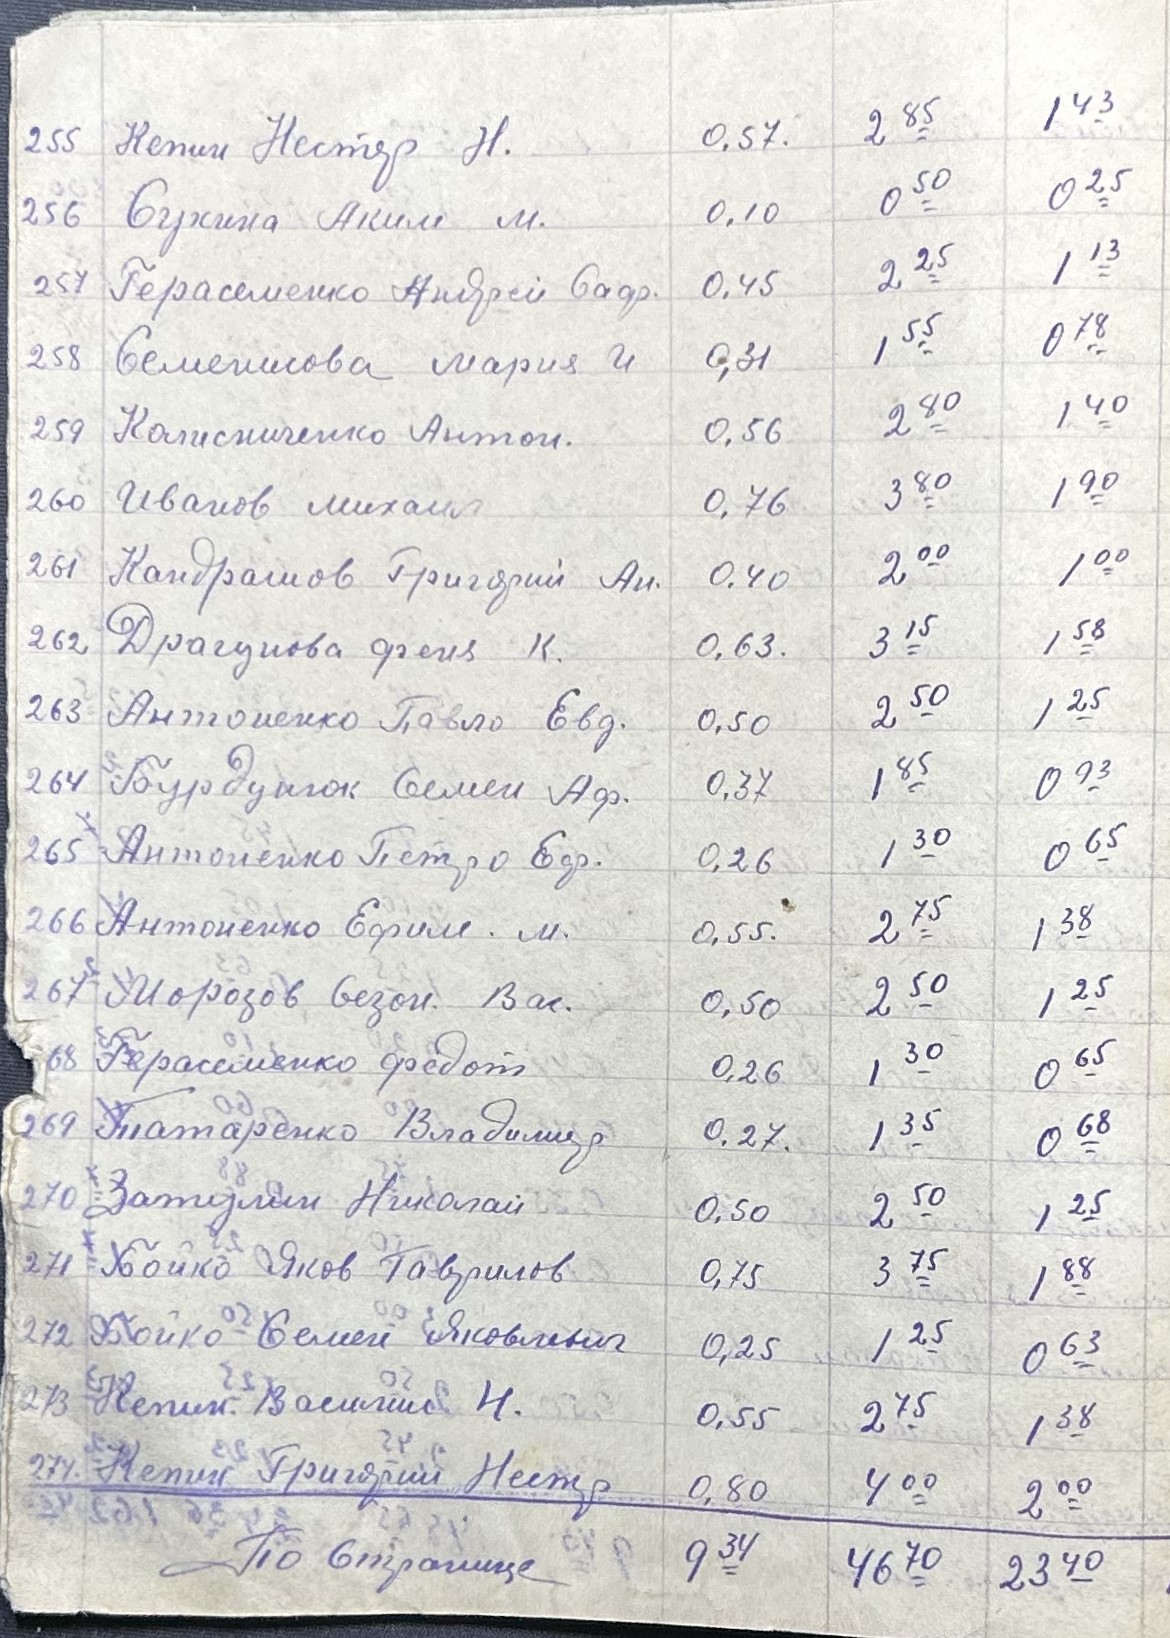 255 Кепин Нестор Н. 0,57. 2 85 1 43
256 Сухина Аким М. 0,10 0 50 0 25
257 Герасеменко Андрей Сафр. 0,45 2 25 1 13
258 Семенисова Мария И 0,31 1 55 0 78
259 Колисниченко Антон. 0,56 2 80 1 40
260 Иванов Михаил 0,76 3 80 1 90
261 Кандрашов Григорий Ан. 0.40 2 00 1 00
262 Драгунова Феня К. 0,63. 3 15 1 58
263 Антоненко Павло Евд. 0,50 2 50 1 25
264 Семен Аф. 0,37 1 85 0 93
265 Антоненко Петро Ефр. 0,26 1 30 0 65
266 Антоненко Ефим. М. 0,55. 2 75 1 38
267 Морозов Сезон. Вас. 0,50 2 50 1 25
68 Герасеменко Федот 0,26 1 30 0 65
269 Владимир 0,27. 1 35 0 68
270 Затулин Николай 0,50 2 50 1 25
271 Бойко Яков Гаврилов 0,75 3 75 1 88
272 Бойко Семен Яковлевич 0,25 1 25 0 63
273 Кепин. Василий Н. 0,55 2 75 1 38
274. Кепин Григорий Нестор 0,80 4 00 2 00
По Странице 9 34 46 70 23 40